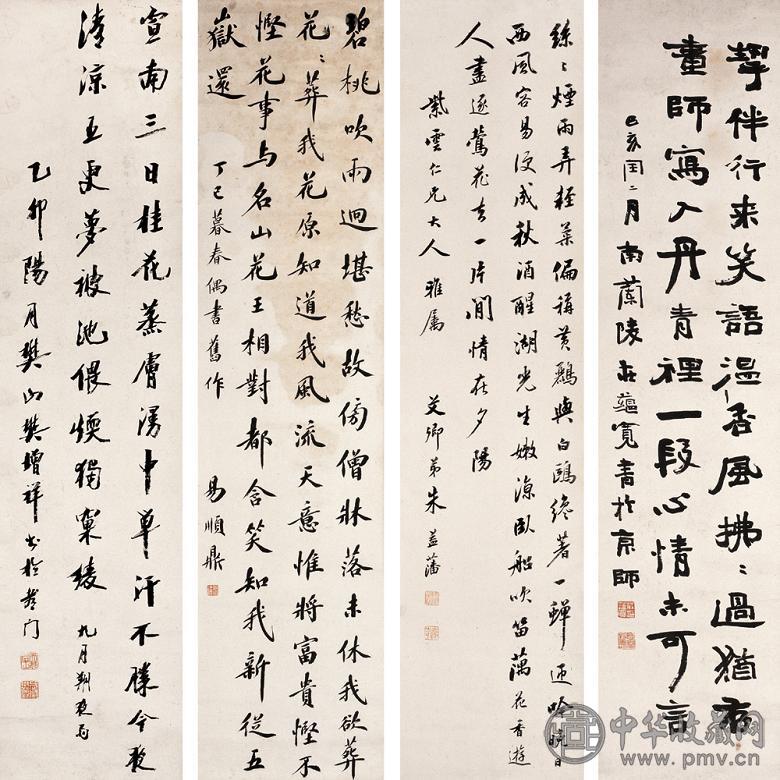 挈伴行来笑語温香風拂〻過猶存
畫師寫入丹青裡一段心情未可言
己亥閏二月南蘭陵莊蘊寬書於京師
絲〻煙雨弄輕柔偏稱黃鸝與白鷗纔著一蟬吟晚日
西風容易便成秋酒醒湖光生嫩涼臥船吹笛藕花香遊
人盡逐鶯花去一片閒情在夕陽
紫雲仁兄大人雅屬 艾卿弟朱益藩
碧桃吹雨迴堪愁故傍僧牀落未休我欲葬
花〻葬我花原知道我風流天意惟將富貴慳不
慳花事与名山花王相對都含笑知我新從五
嶽還 丁巳暮春偶書舊作 易順鼎
宣南三日桂花蒸膚湯中單汗不勝今夜
清涼五更夢被池偎煖獨綾 九月朔夜
乙卯陽月樊山樊增祥書於門
中华收藏网
www.pmv.cn